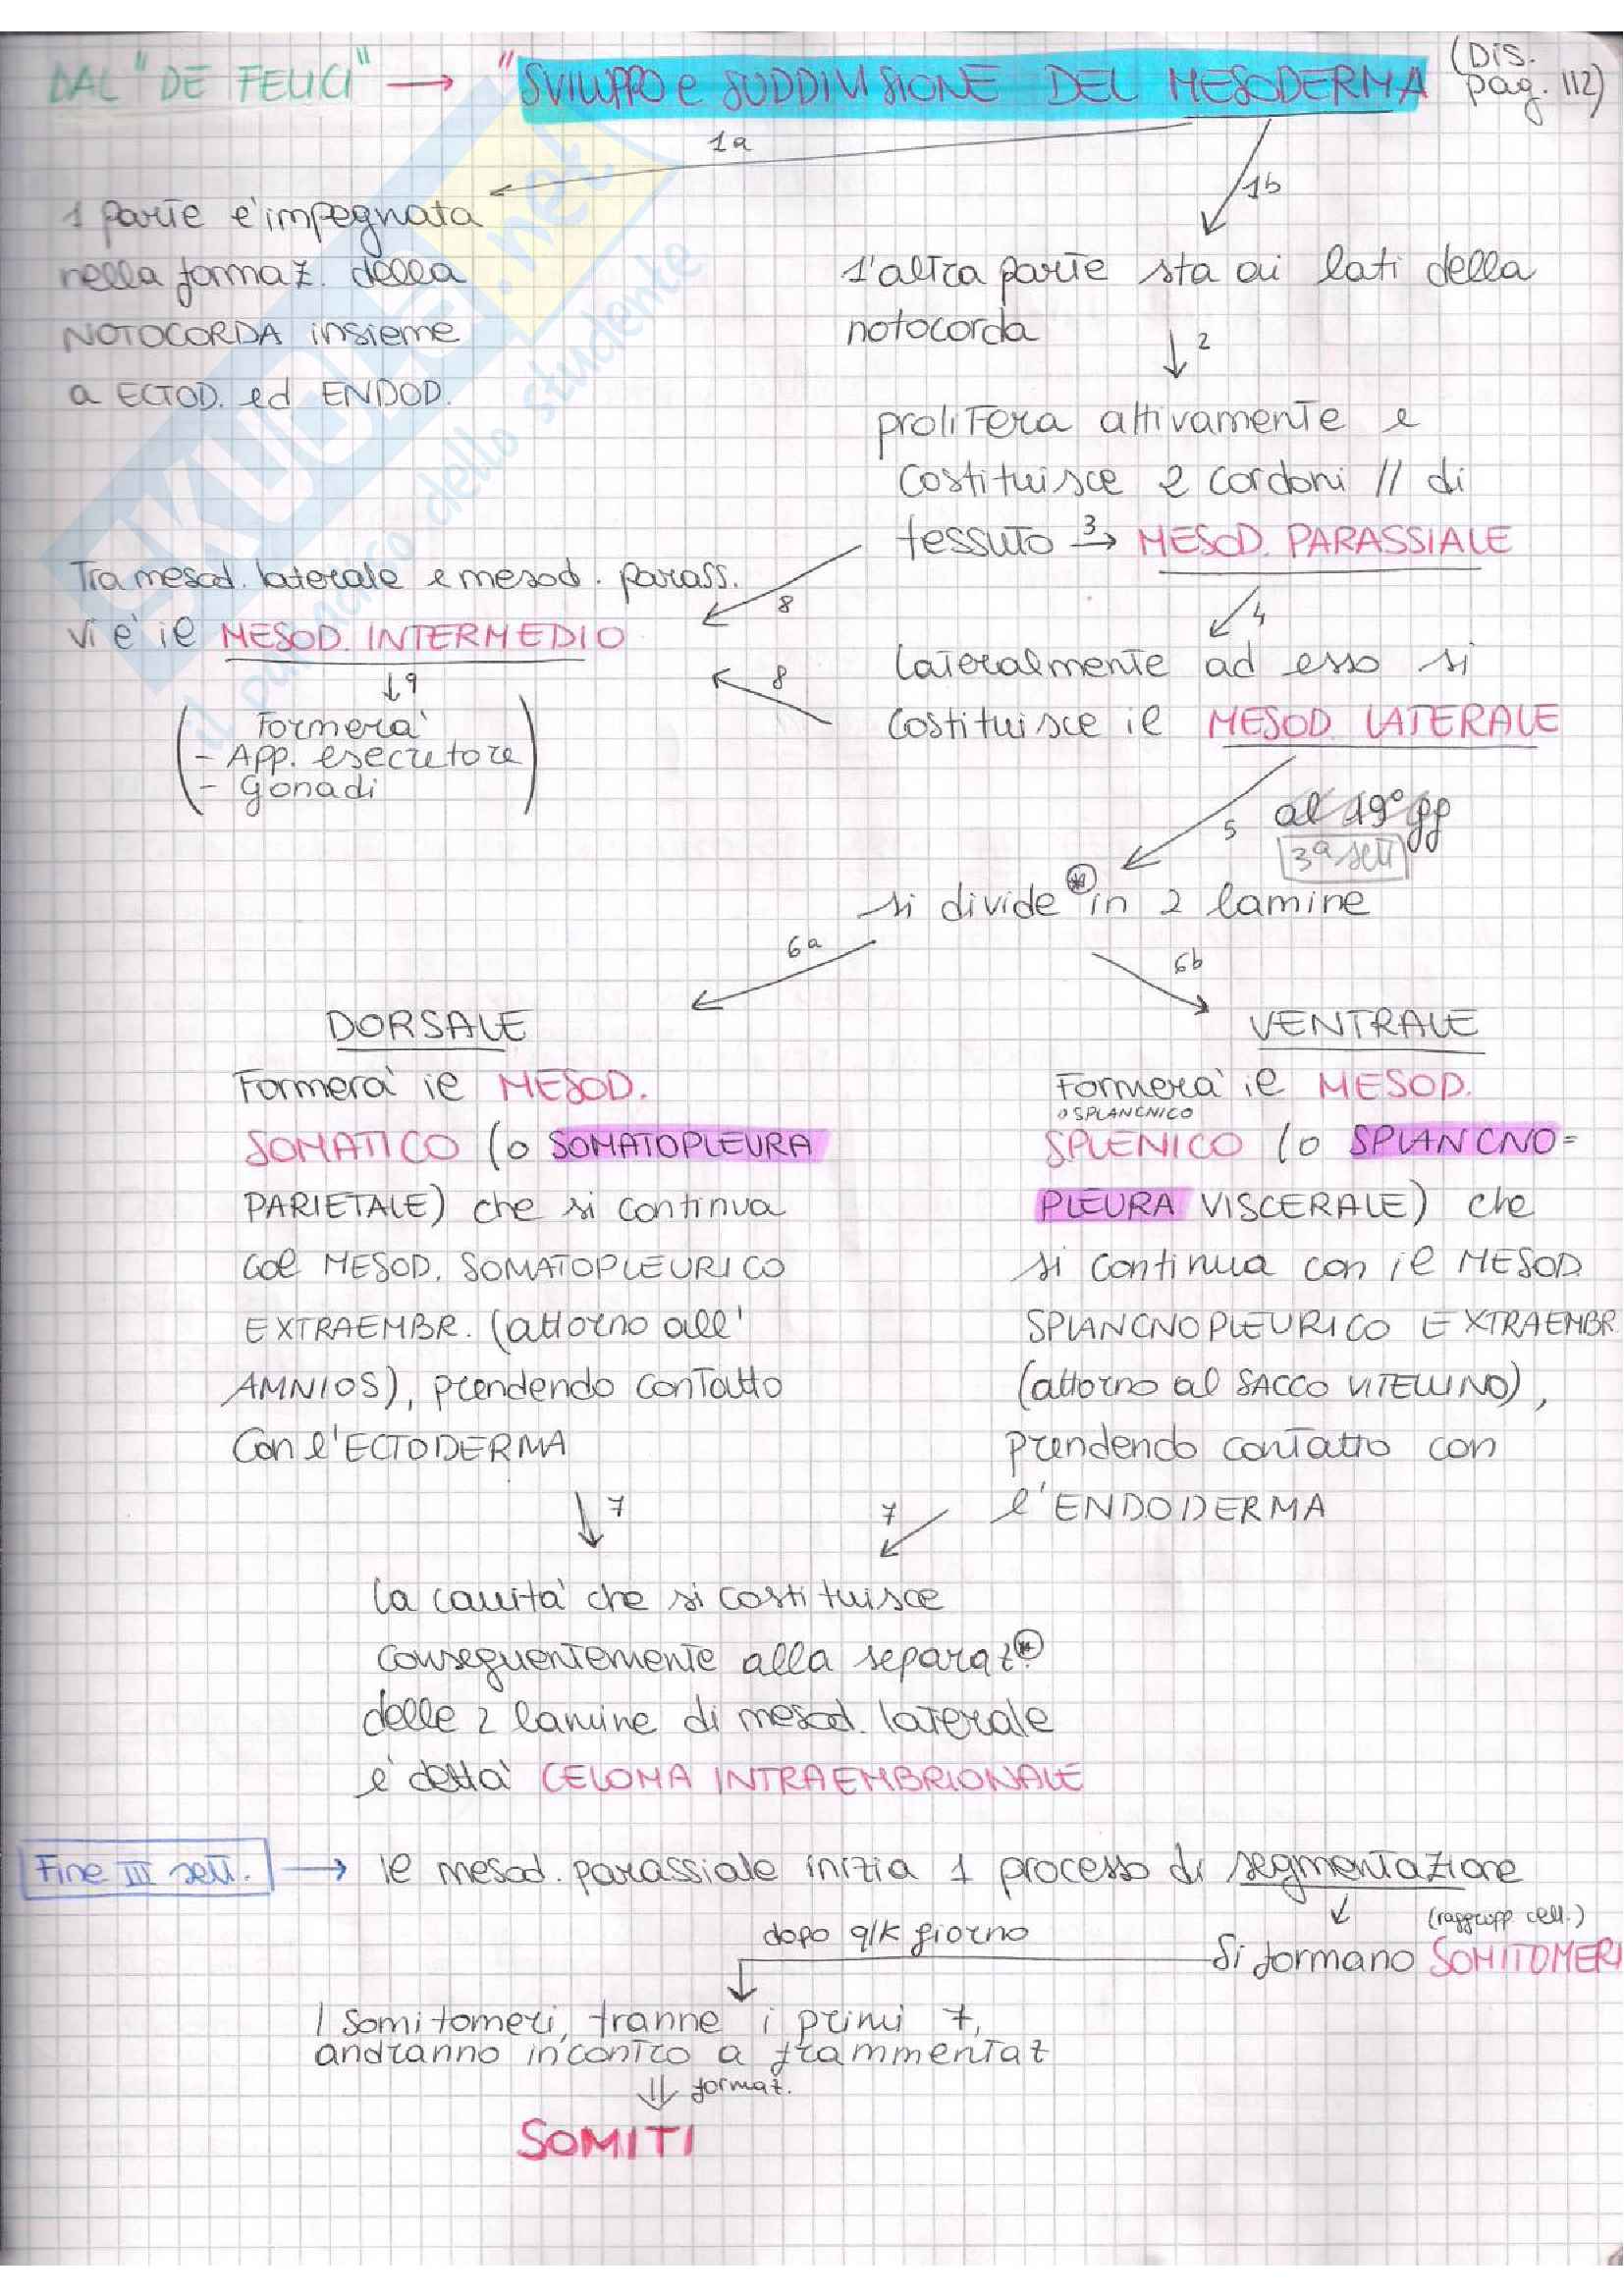 DAL "DE FELICI" → "SVILUPPO e SUDDIVISIONE DEL MESODERMA (DIS. pag. 112)
1a
1b
1 parte e' impegnata
nella formaz. della
NOTOCORDA insieme
a ECTOD. ed ENDOD.
l'altra parte sta ai lati della
notocorda
2
prolifera attivamente e
costituisce 2 cordoni // di
tessuto 3→ MESOD. PARASSIALE
4
Tra mesod. laterale e mesod. parass.
vi e' il MESOD. INTERMEDIO
8
8
9
(Formera'
- App. escretore
- Gonadi)
lateralmente ad esso si
costituisce il MESOD. LATERALE
5 al 19° gg
3ª sett
si divide * in 2 lamine
6a
6b
DORSALE
Formera' il MESOD.
SOMATICO (o SOMATOPLEURA
PARIETALE) che si continua
col MESOD. SOMATOPLEURICO
EXTRAEMBR. (attorno all'
AMNIOS), prendendo contatto
con l'ECTODERMA
7
VENTRALE
Formera' il MESOD.
o SPLANCNICO
SPLENICO (o SPLANCNO=
PLEURA VISCERALE) che
si continua con il MESOD
SPLANCNOPLEURICO EXTRAEMBR
(attorno al SACCO VITELLINO),
prendendo contatto con
l'ENDODERMA
7
la cavita' che si costituisce
conseguentemente alla separaz. *
delle 2 lamine di mesod. laterale
e' detta CELOMA INTRAEMBRIONALE
Fine III sett. → il mesod. parassiale inizia 1 processo di segmentazione
(raggrupp. cell.)
dopo q/k giorno
Si formano SOMITOMERI
I somitomeri, tranne i primi 7,
andranno incontro a frammentaz
⇓ formaz.
SOMITI
SKUOLA.net
il paradiso dello studente